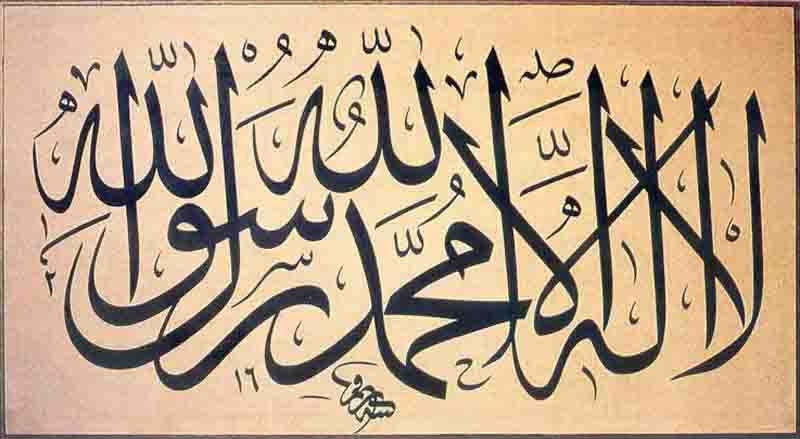 لا اله الا الله محمد رسول الله
١٦